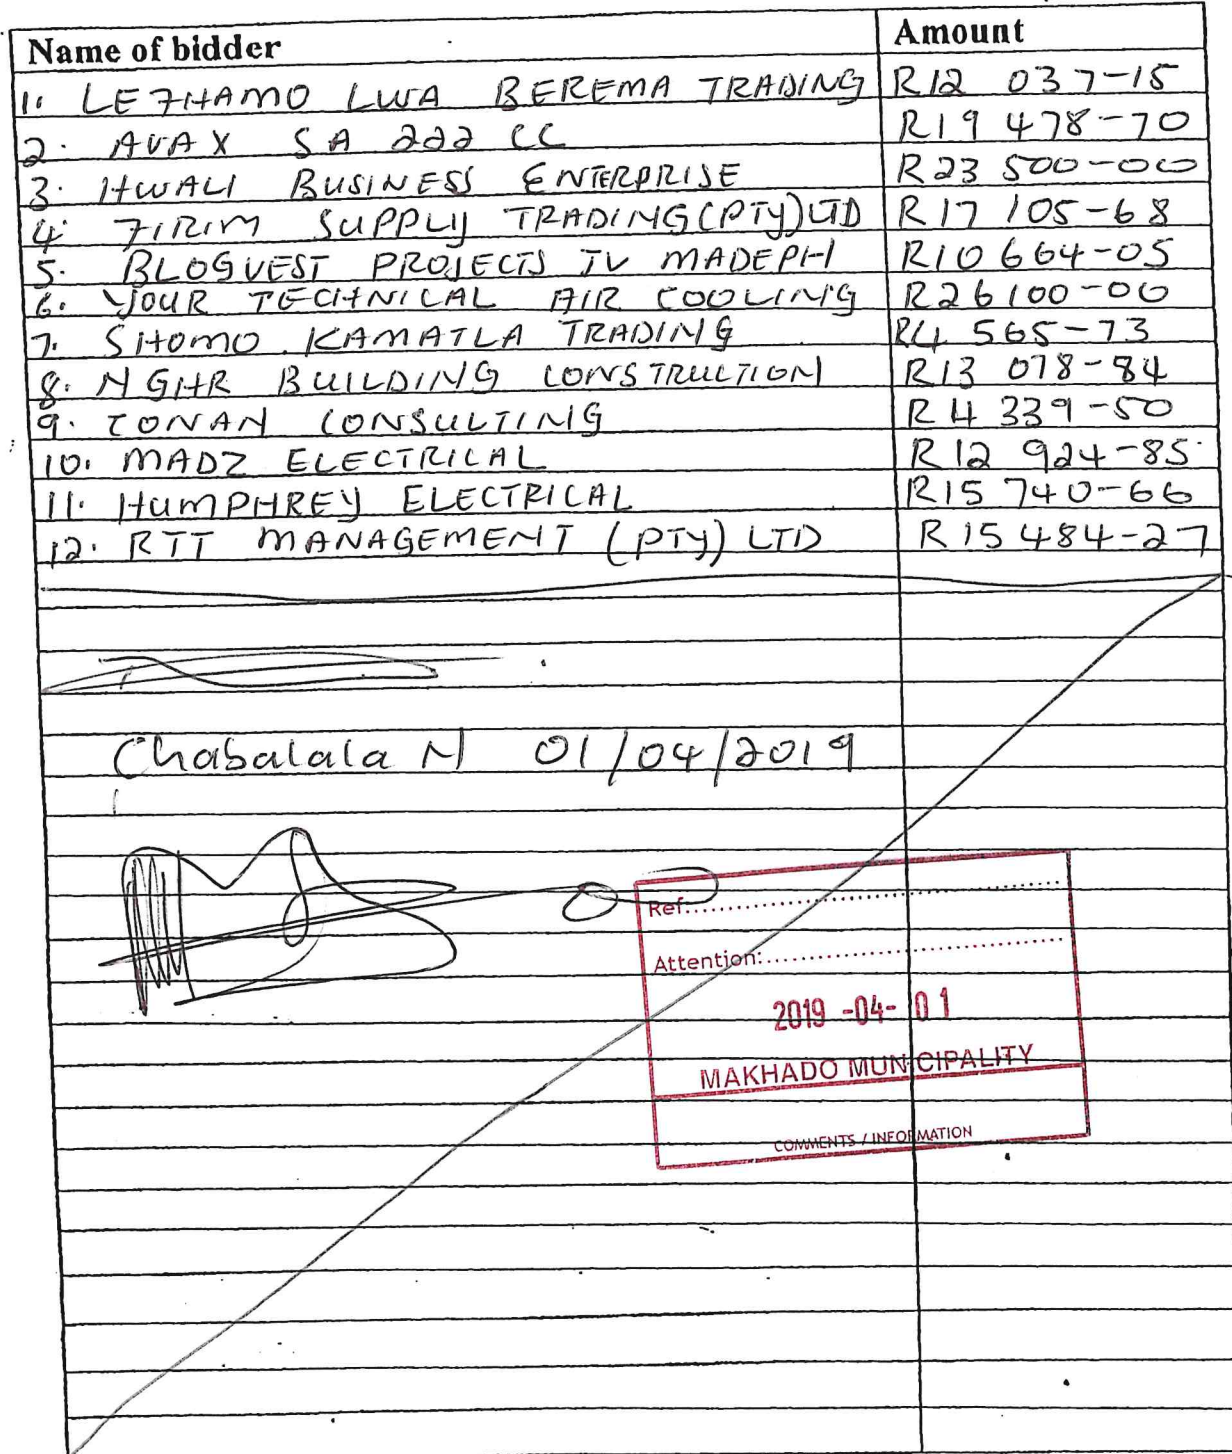 Name of bidder Amount
1. LETHAMO LWA BEREMA TRADING R12 037-15
2. AVAX SA 222 CC R19 478-70
3. HWALI BUSINESS ENTERPRISE R23 500-00
4. FIRIM SUPPLY TRADING (PTY) LTD R17 105-68
5. BLOGVEST PROJECTS JV MADEPH R10 664-05
6. YOUR TECHNICAL AIR COOLING R26 100-00
7. SHOMO KAMATLA TRADING R4 565-73
8. NGHR BUILDING CONSTRUCTION R13 078-84
9. CONAN CONSULTING R4 339-50
10. MADZ ELECTRICAL R12 924-85
11. HUMPHREY ELECTRICAL R15 740-66
12. RTT MANAGEMENT (PTY) LTD R15 484-27
Chabalala N 01/04/2019
Ref:
Attention:
2019 -04- 01
MAKHADO MUNICIPALITY
COMMENTS / INFORMATION